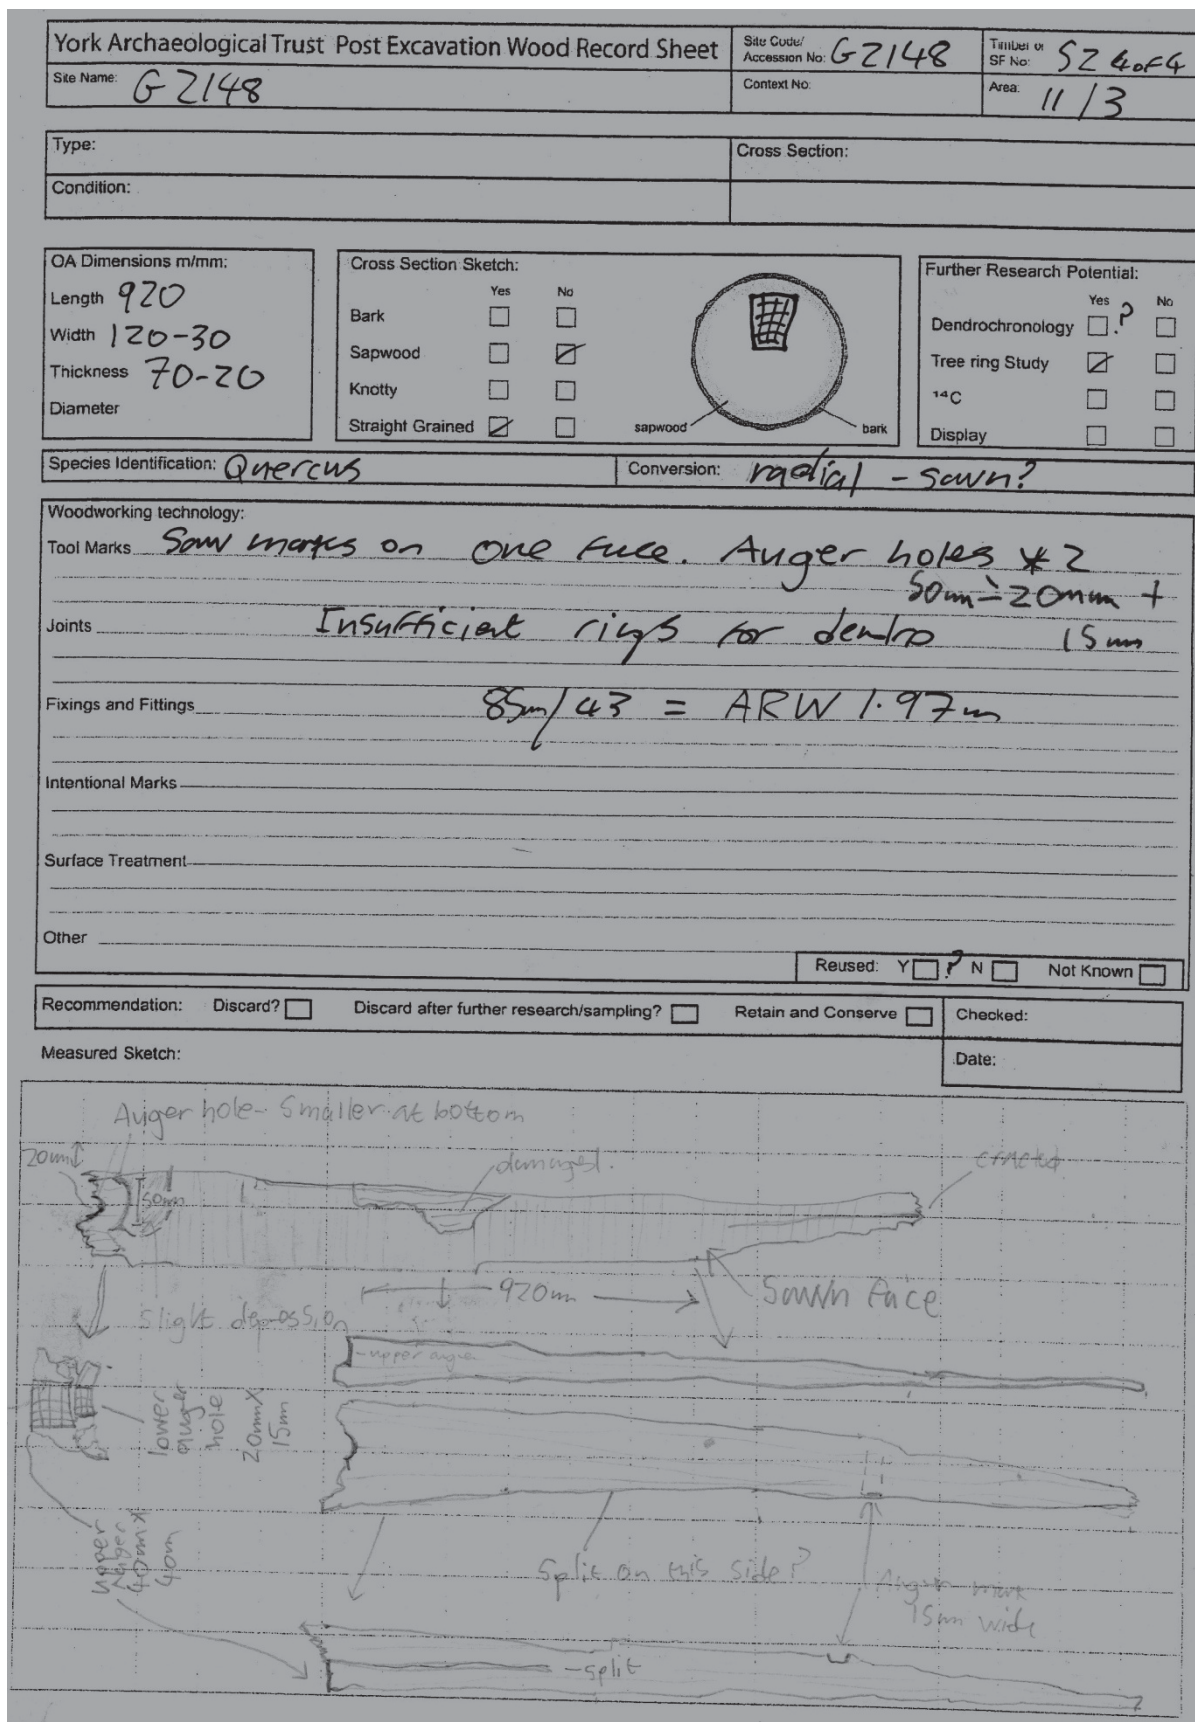 York Archaeological Trust Post Excavation Wood Record Sheet
Site Code/ Accession No: GZ148
Timber or SF No: SZ 4 of 4
Site Name: GZ148
Context No:
Area: 11/3
Type:
Cross Section:
Condition:
OA Dimensions m/mm:
Length 920
Width 120-30
Thickness 70-20
Diameter
Cross Section Sketch:
Yes No
Bark
Sapwood
Knotty
Straight Grained
sapwood
bark
Further Research Potential:
Yes No
Dendrochronology ?
Tree ring Study
14C
Display
Species Identification: Quercus
Conversion: radial - sawn?
Woodworking technology:
Tool Marks Saw marks on one face. Auger holes * 2
50mm-20mm +
Joints Insufficient rings for dendro 15mm
Fixings and Fittings 85mm/43 = ARW 1.97mm
Intentional Marks
Surface Treatment
Other
Reused: Y ? N Not Known
Recommendation: Discard? Discard after further research/sampling? Retain and Conserve
Checked:
Measured Sketch:
Date:
Auger hole - Smaller at bottom
20mm
damaged.
50mm
920mm
Sawn face
Slight depression
-upper auger
lower
auger
hole
20mmX
15mm
upper
Auger
40mmX
40mm
Split on this side?
Auger mark
15mm wide
-split